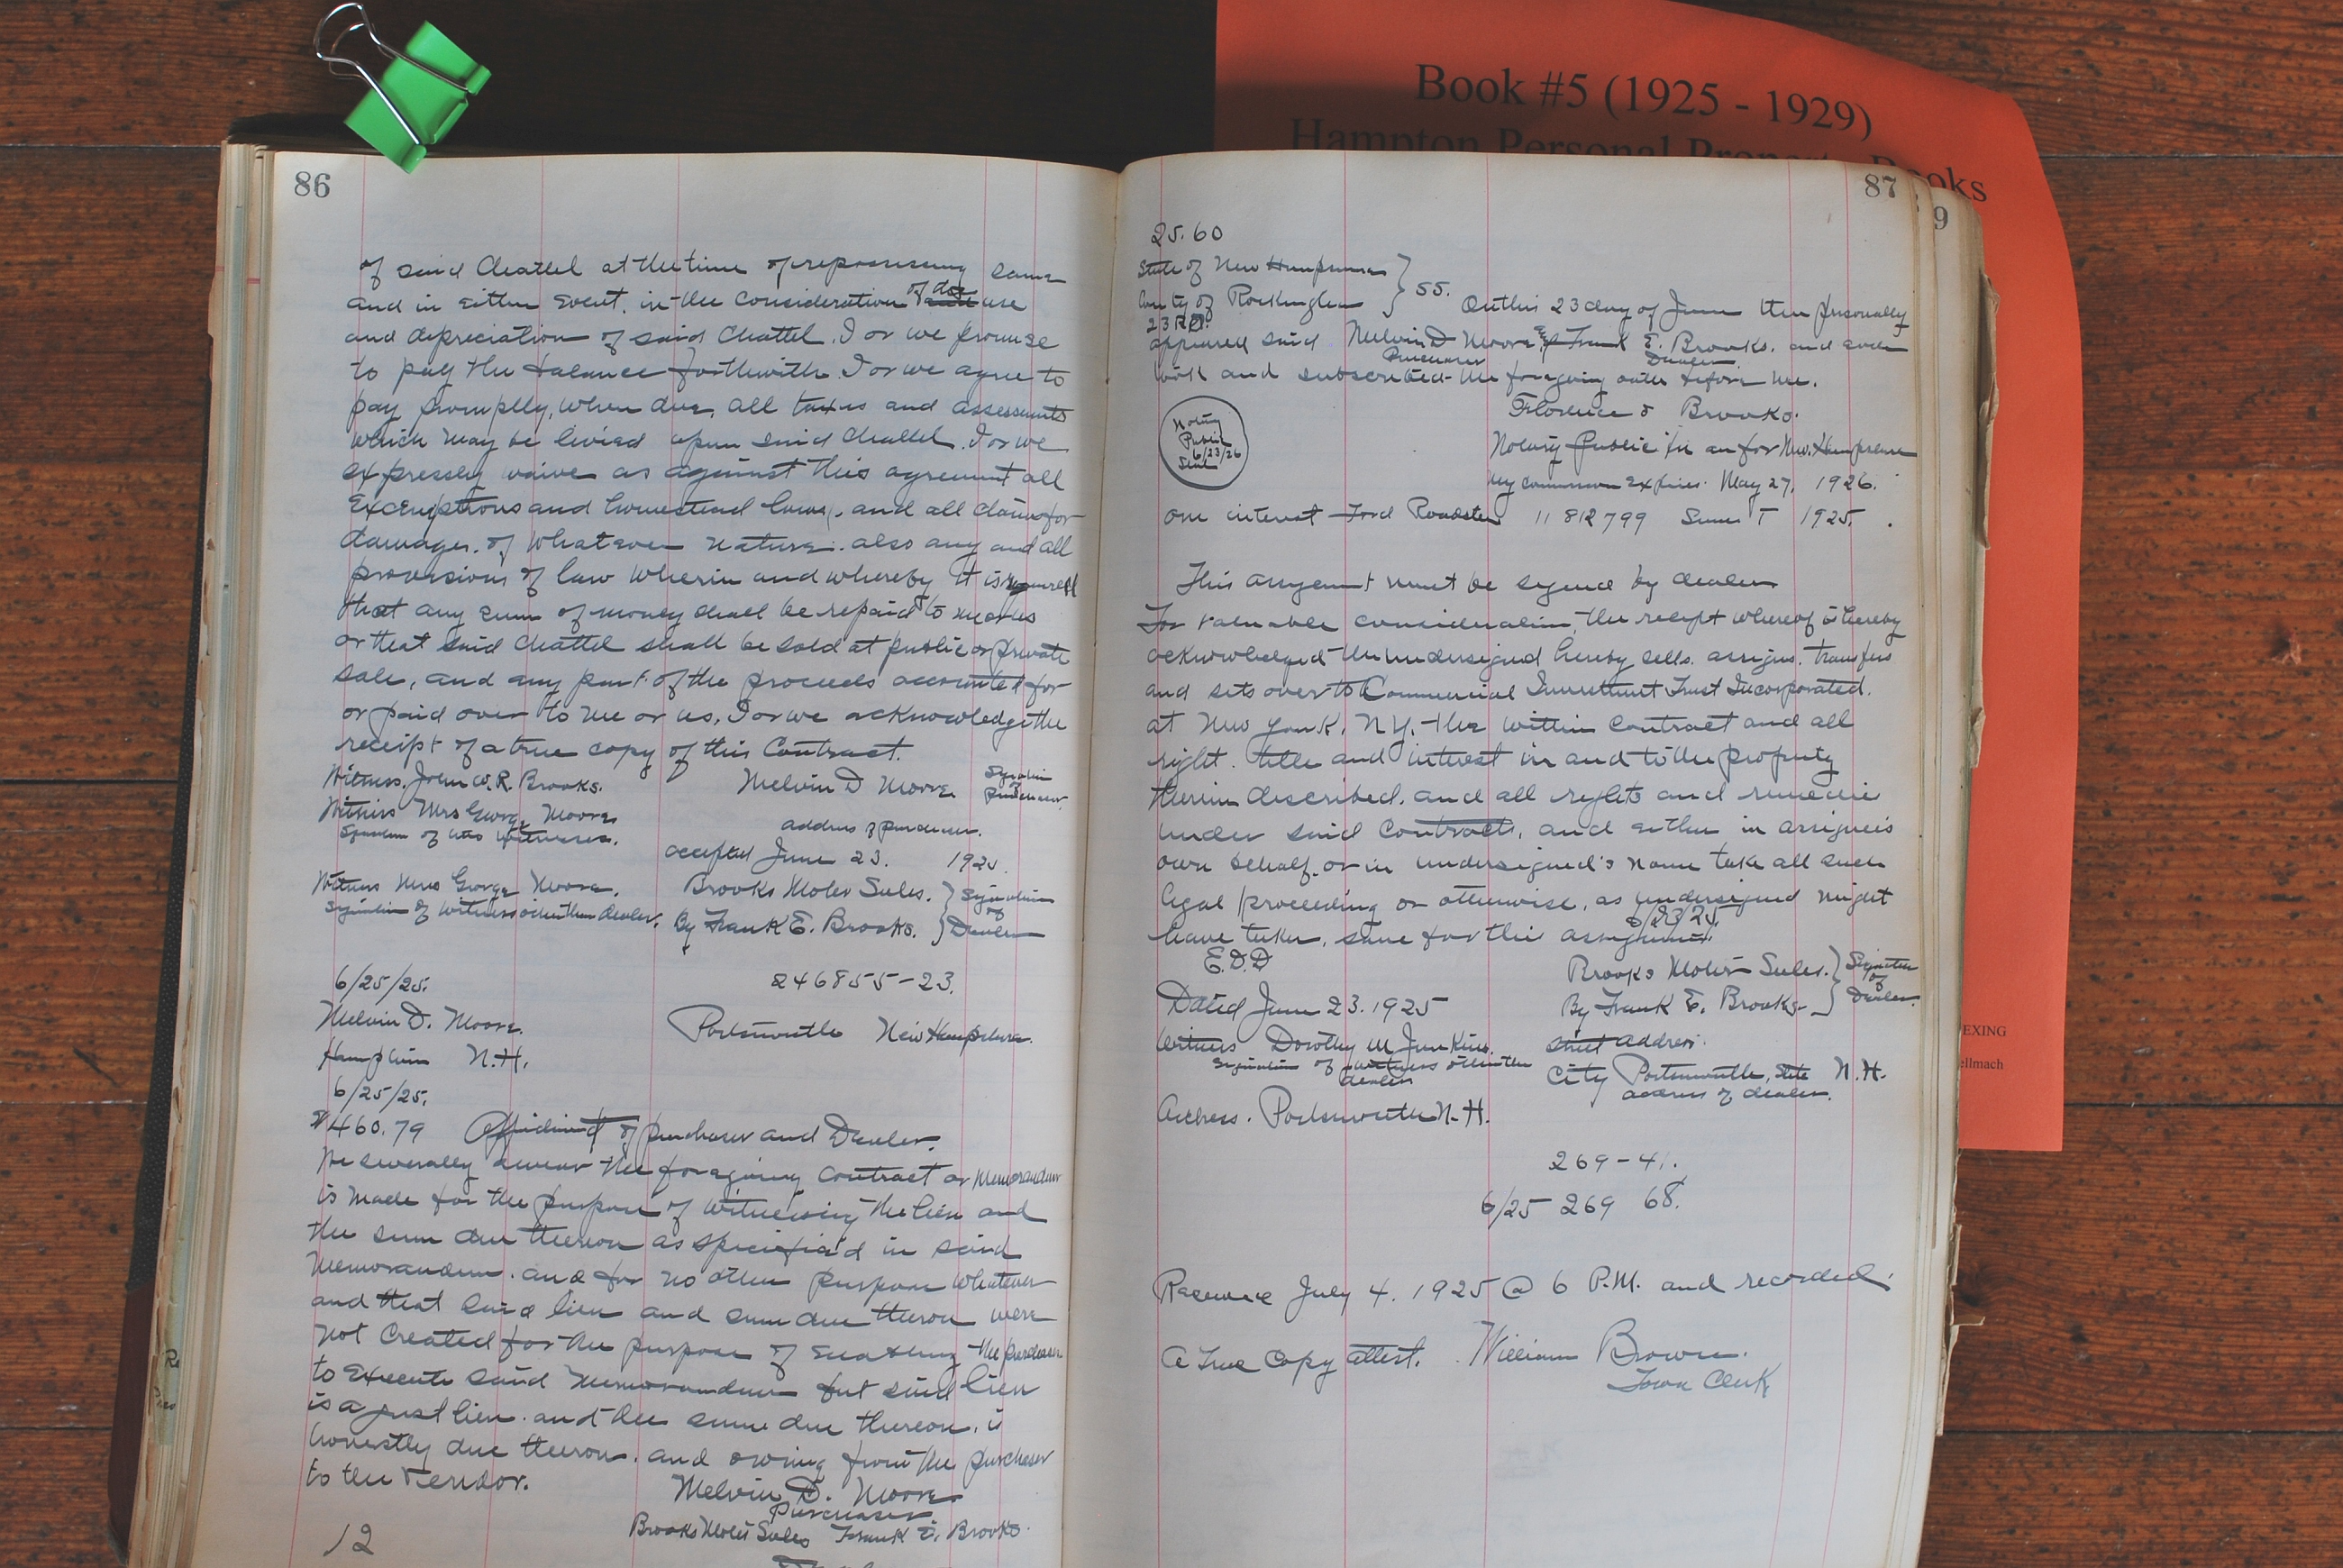 Book #5 (1925 - 1929)
Hampton Personal Property Books
86
of said Chattel at the time of repossessing same
and in either event, in the consideration of the use
and depreciation of said Chattel. I or we promise
to pay the balance forthwith. I or we agree to
pay promptly, when due, all taxes and assessments
which may be levied upon said chattel. I or we
expressly waive as against this agreement all
Exemptions and homestead laws, and all claims for
damages of whatever nature. also any and all
provisions of law wherin and whereby it is required
that any sum of money shall be repaid to me or us
or that said Chattel shall be sold at public or private
sale, and any part of the proceeds accounted for
or paid over to me or us, I or we acknowledge the
receipt of a true copy of this Contract.
Witness. John W. R. Brooks.
Melvin D Moore
Signature of purchaser
Witness Mrs George Moore
Signature of two Witnesses.
address of purchaser.
accepted June 23. 1925.
Witness Mrs George Moore.
Brooks Moter Sales.
Signature of witness other than dealer.
By Frank E. Brooks.
Signature of Dealer
6/25/25.
246855-23.
Melvin D. Moore.
Portsmouth New Hampshire.
Hampton N.H.
6/25/25.
$460.79 Affidavit of purchaser and Dealer.
We severally swear the foregoing contract or memorandum
is made for the purpose of witnessing the lien and
the sum due thereon as specified in said
Memorandum. and for no other purpose whatever
and that said lien and sum due thereon were
not Created for the purpose of enabling the purchaser
to execute said memorandum but said lien
is a just lien. and the sum due thereon, is
honestly due thereon. and owing from the purchaser
to the vendor.
Melvin D. Moore
Purchaser
Brooks Moter Sales Frank E. Brooks.
12
87
9
25.60
State of New Hampshire
County of Rockingham
ss. On this 23 day of June then personally
23 Rd.
appeared said Melvin D Moore, & Frank E. Brooks. and each
Purchaser Dealer
took and subscribed the foregoing oath before me.
Florence Brooks.
Notary Public
6/23/26
Seal
Notary Public in an for New. Hampshire
My commission expires. May 27, 1926.
one interest Ford Roadster 11812799 Series T 1925.
This assignment must be signed by dealer
For valuable consideration, the receipt whereof is hereby
acknowledged the undersigned hereby sells. assigns. transfers
and sets over to Commercial Investment Trust Incorporated.
at New York, N.Y. the within contract and all
right. title and interest in and to the property
therein described, and all rights and remedies
under said Contract, and either in assignee's
own behalf. or in undersigned's name take all such
legal proceeding or otherwise, as undersigned might
have taken, save for this assignment.
6/23/25.
E.D.D
Brooks Moter Sales.
Signature of Dealer.
Dated June 23. 1925
By Frank E. Brooks
Witness Dorothy M Junkins.
Street address.
Signature of witness other than dealer
City Portsmouth, State N.H.
address of dealer.
Address. Portsmouth N.H.
269-41.
6/25 269 68.
Received July 4, 1925 @ 6 P.M. and recorded.
A True Copy attest. William Brown.
Town Clerk
EXING
ellmach